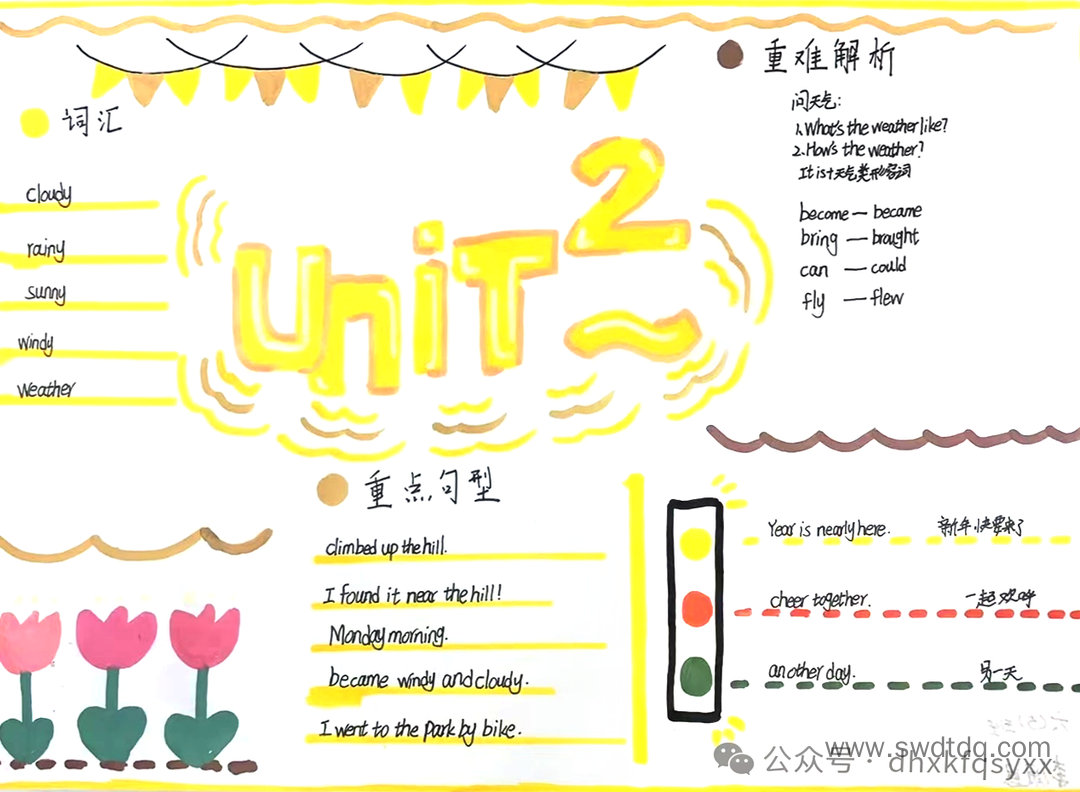 词汇
cloudy
rainy
sunny
windy
weather
unit 2
重难解析
问天气:
1.What's the weather like?
2.How's the weather?
It is+天气类形容词
become — became
bring — brought
can — could
fly — flew
重点句型
climbed up the hill.
I found it near the hill!
Monday morning.
became windy and cloudy.
I went to the park by bike.
Year is nearly here. 新年快要来了
cheer together. 一起欢呼
another day. 另一天
www.swdtdq.com
公众号·dhxkfqsyxx